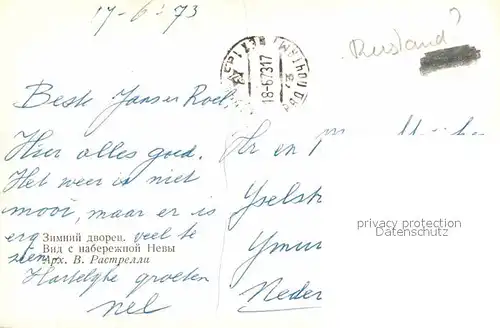 17-6-'73
Rusland?
18-6 73 17
Beste Jans en Roel,
Hier alles goed.
Het weer is niet
mooi, maar er is
erg veel te
zien.
Hartelijke groeten
Nel
Зимний дворец.
Вид с набережной Невы
Арх. В. Растрелли
Hr en
Yselst
Ymui
Neder
privacy protection
Datenschutz